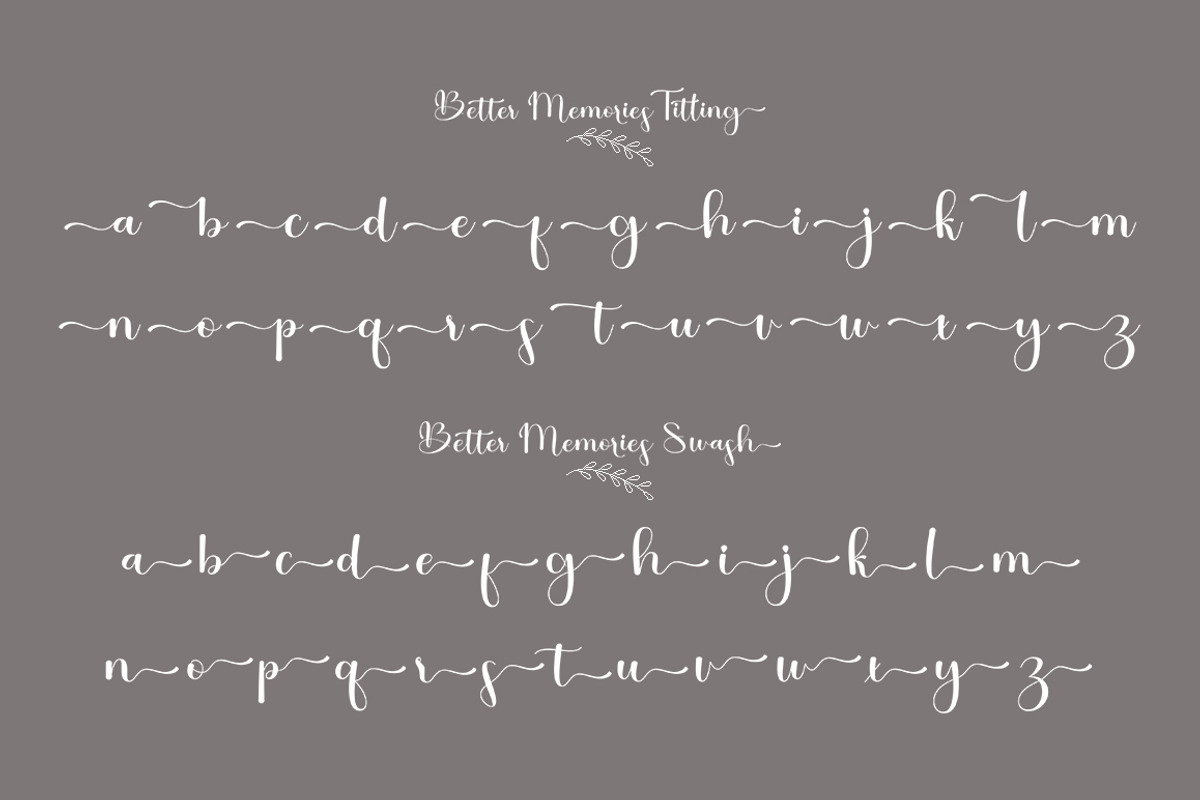 Better Memories Titting
a b c d e f g h i j k l m
n o p q r s t u v w x y z
Better Memories Swash
a b c d e f g h i j k l m
n o p q r s t u v w x y z